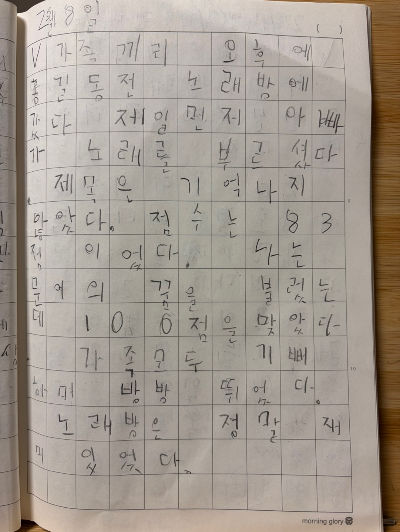 2월 8일
( )
V 가족끼리 오후에
홍길동전 노래방에
갔다. 제일 먼저 아빠
가 노래를 부르셨다
. 제목은 기억나지
않았다. 점수는 83
점이었다. 나는
문어의 꿈을 불렀는
데 100점을 맞았다
. 가족 모두 기뻐
하며 방방 뛰었다.
노래방은 정말 재
미있었다.
morning glory